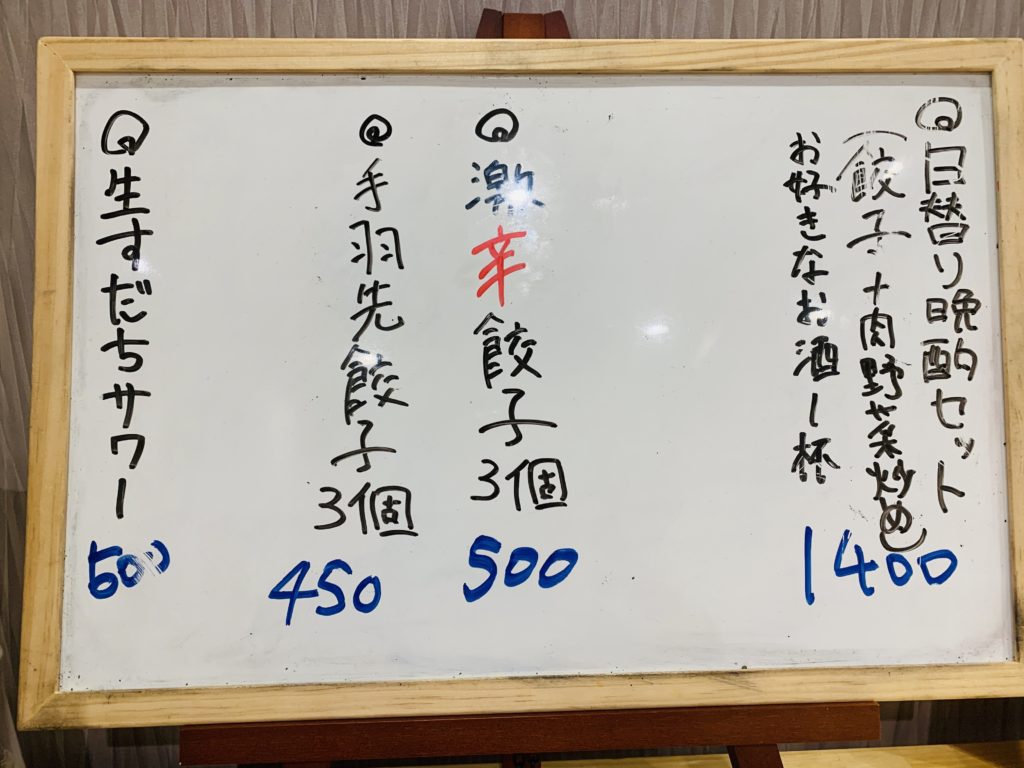 日替り晩酌セット
(餃子+肉野菜炒め)
お好きなお酒1杯
1400
激辛餃子3個
500
手羽先餃子3個
450
生すだちサワー
500